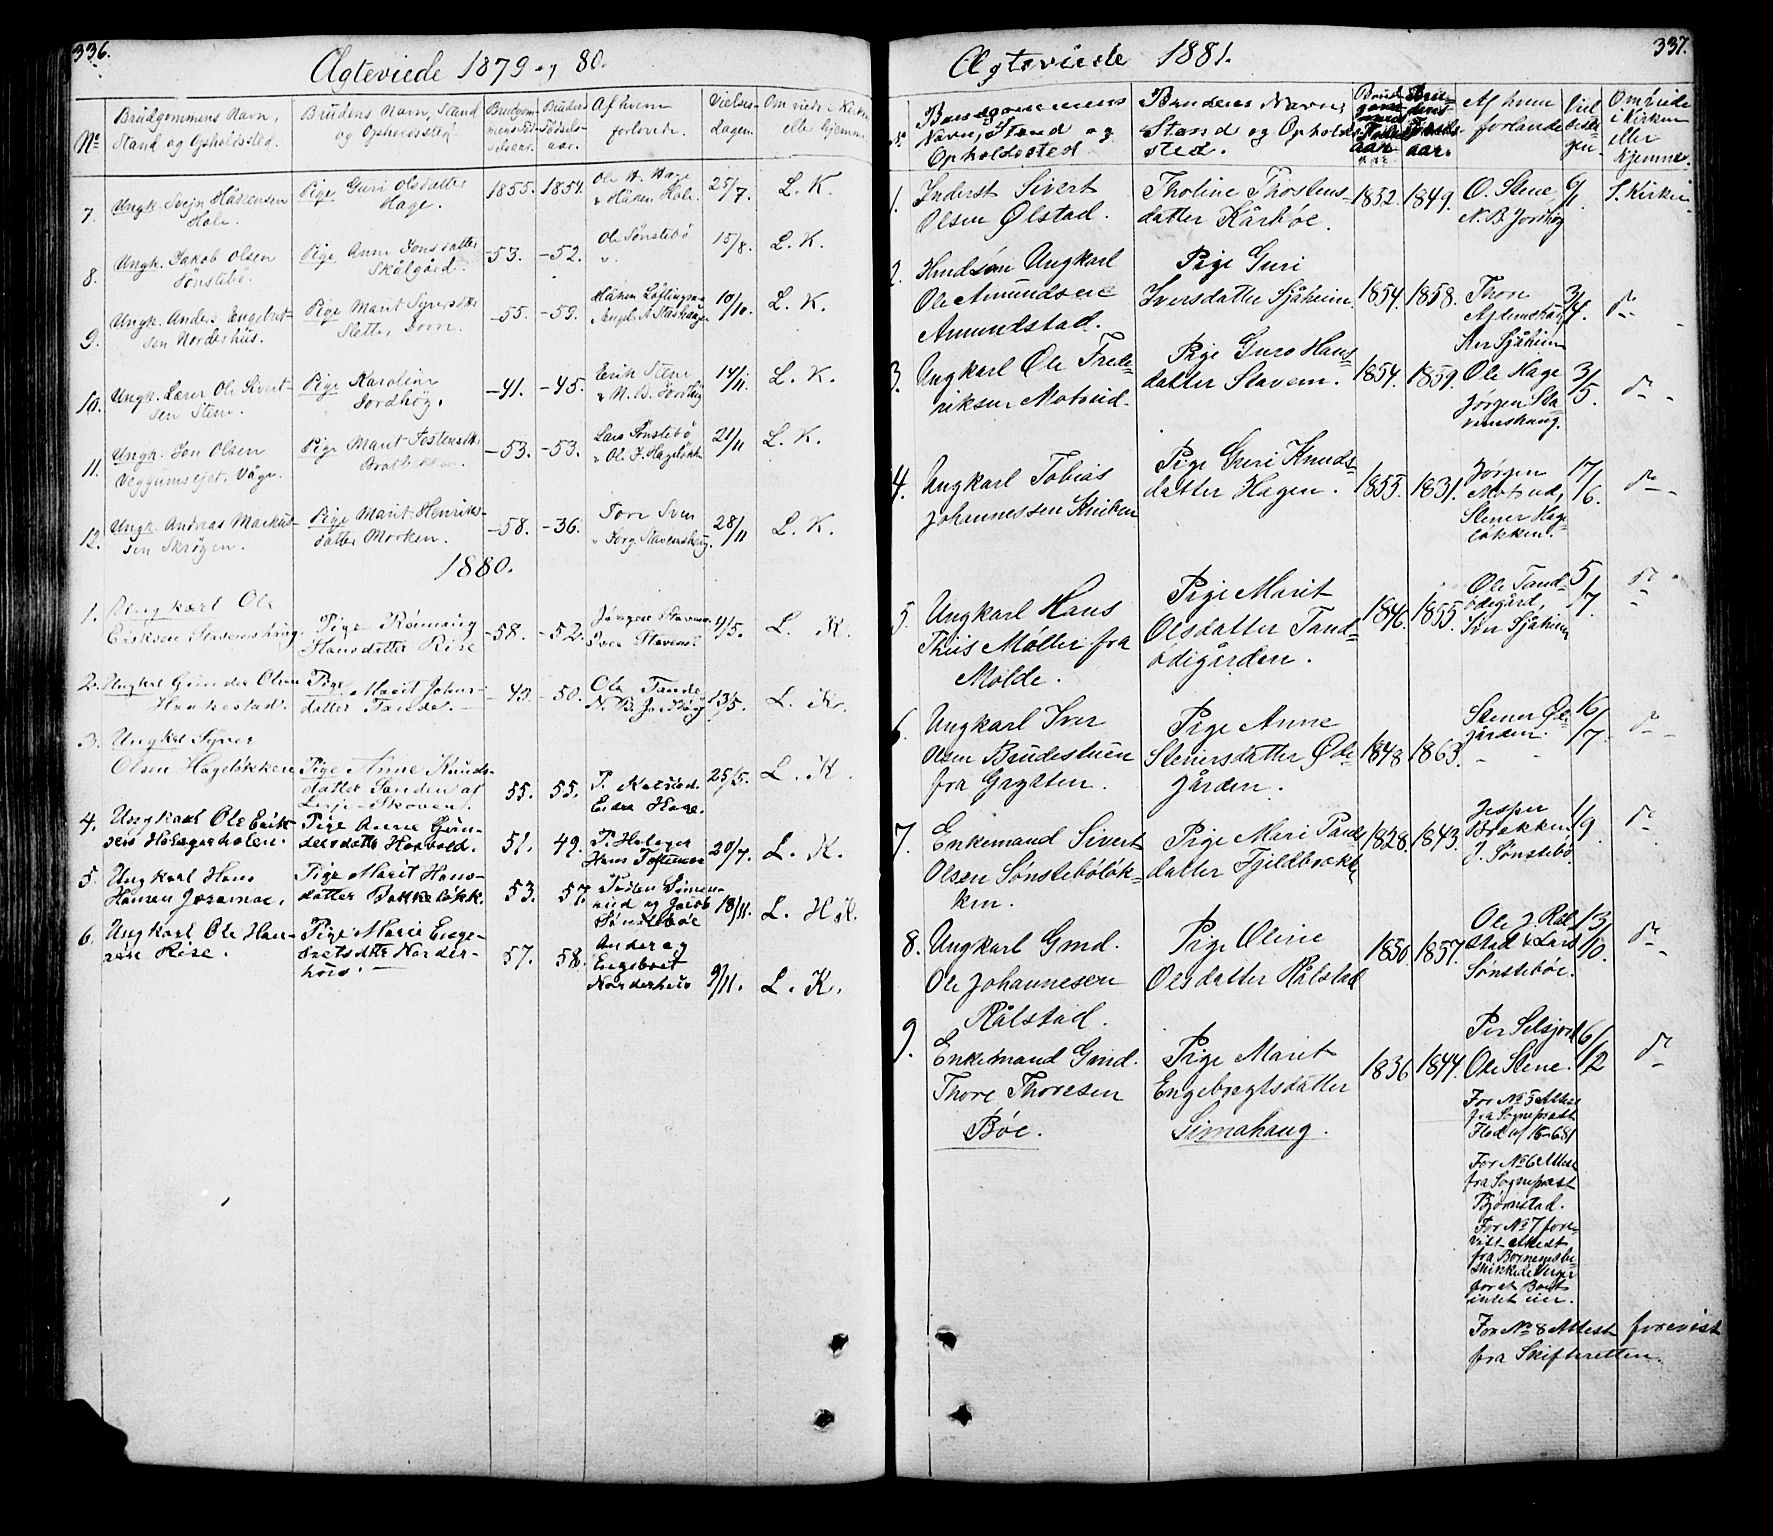 336.
Ægteviede 1879 og 80.
No
Brudgommens Navn, Stand og Opholdssted.
Brudens Navn, Stand og Opholdssted
Brudgommens Fødselsaar.
Brudens Fødselsaar.
Af hvem forlovede.
Vielses-dagen.
Om viede i Kirken eller hjemme
7. Ungk. Svejn Håkensen Hole. Pige Guri Olsdatter Hage. 1855. 1854. Ole A. Hage " Håken Hole. 25/7. L. K.
8. Ungk. Jakob Olsen Sønstebö. Pige Anne Jonsdatter Skålgård. -53. -52. Ole Sønstebö " 15/8. L. K.
9. Ungk. Anders Engebret- sen Norderhus. Pige Marit Syversdtr Sletten, Dovre. -55. -59. Håken Løftingsmo 10/10 L. K.
10. Ungk. Lærer Ole Sivert- sen Stene. Pige Karoline Jordhøy. -41. -45. Erik Stene " N. B. Jordhøy 14/11. L. K.
11. Ungk. Jon Olsen Veggumsejet, Våge. Pige Marit Jostensdtr Bratlökken. -53. -53. Lars Sønstebö " Ole J. Hagelökk 21/11 L. K.
12. Ungk. Andreas Markus- sen Skrøgen. Pige Marit Henriks- datter Morken. -58. -36. Tore Sven " Jørg. Stavemshaug. 28/11 L. K.
1880.
1. Ungkarl Ole Eriksen Stavemshaug. Pige Rønnaug Hansdatter Rise -58. -52. Jørgen Stavem. Iver Stavem. 4/5. L. K.
2. Ungkarl Gunder Olsen Haakestad. Pige Marit Johns- datter Tande. -49. -50. Ole Tande N. B. Jordhøy 13/5. L. K.
3. Ungkl Syver Olsen Hageløkken Pige Anne Knuds- datter Sanden af Lesje-Skoven. 55. 55. P. Kolstad. Endre Hage. 25/5. L. K.
4. Ungkarl Ole Erik- sen Holagerholen. Pige Anne Gun- dersdatter Horvold. 51. 49. P. Holager Hans Toftemoe 20/7. L. K.
5 Ungkarl Hans Hansen Joramoe. Pige Marit Hans- datter Bakkeløkk. 53. 57. Jacob Sønstebøe 18/11. L. H. K.
6. Ungkarl Ole Han- sen Rise. Pige Marie Enge- bretsdtr Norder- huus. 57. 58. Anders og Engebret Norderhuus 9/11. L. K.
337.
Ægteviede 1881.
No
Brudgommens Navn, Stand og Opholdssted
Brudens Navn, Stand og Opholds- sted.
Brudgommens Fødselsaar
Brudens Fødselsaar.
Af hvem forlovede
Vielsesdagen.
Om viede i Kirken eller hjemme.
1. Inderst Sivert Olsen Ølstad. Tholine Thostens- datter Kårbøe. 1852. 1849. O. Stene N. B. Jordhøy 9/1. I. Kirken.
2. Ungkarl Ole Amundsen Amundstad. Pige Guri Iversdatter Sjåheim. 1854. 1858. Thore Iver Sjåheim 3/4. do
3. Ungkarl Ole Frede- riksen Motrud. Pige Guro Hans- datter Stavem. 1854. 1859. Ole Hage Jørgen Sta- vemshaug. 3/5. do
4. Ungkarl Tobias Johannessen Stuken Pige Guri Knuds- datter Hagen. 1855. 1831. Jørgen Motrud, Stener Hage- løkken. 17/6. do
5. Ungkarl Hans Thiis Møller fra Molde. Pige Marit Olsdatter Tand- ødegården. 1846. 1855. Ole Tand- ødegård, Iver Sjåheim 5/7. do
6. Ungkarl Iver Olsen Brudestuen fra Grytten. Pige Anne Stenersdatter Øde- gården. 1848. 1863. Stener Øde- gården. 16/7. do
7. Enkemand Sivert Olsen Sønstebøløk- ken. Pige Mari Pauls- datter Fjeldbækk 1828. 1843. Jesper Brækken. J. Sønstebø. 1/9. do
8. Ungkarl Gmd. Ole Johannesen Rålstad. Pige Oline Olsdatter Rålstad 1856. 1857. Ole J. Rål- stad & Lars Sønstebøe. 13/10. do
9. Enkemand Gmd. Thore Thoresen Bøe. Pige Marit Engebregtsdatter Simahaug. 1836 1844. Per Selsjord Ole Stene. 6/12 do
For No 5 Attest fra Sognepræst Flod af 16-6-81
For No 6 Attest fra Sognepræst Bjørnstad.
For No 7 fore- vist attest
for at Boet intet eier.
For No 8 Attest forevist fra Skifteretten.